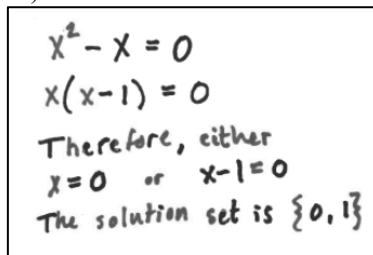 x² - x = 0
x(x-1) = 0
Therefore, either
x=0 or x-1=0
The solution set is {0,1}